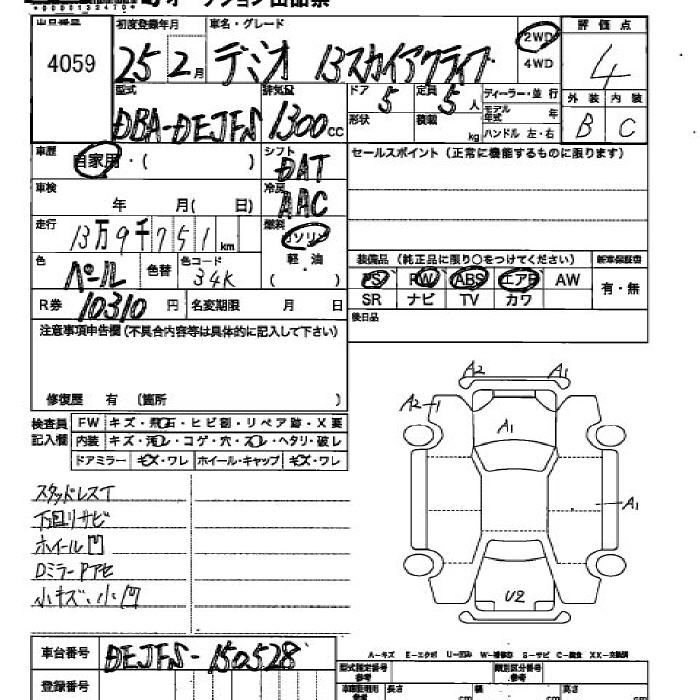 オークション出品票
出品番号 4059
初度登録年月 25年2月
車名・グレード デミオ 13スカイアクティブ
2WD 4WD
評価点 4
外装 B 内装 C
型式 DBA-DEJFS
排気量 1300cc
ドア 5 形状
定員 5人 積載 kg
ディーラー・並行
モデル年式 年
ハンドル 左・右
車歴 自家用・( )
シフト DAT
セールスポイント (正常に機能するものに限ります)
車検 年 月( 日)
冷房 AAC
走行 13万9千751km
燃料 ガソリン 軽・油 ( )
色 パール 色替 色コード 34K
装備品 (純正品に限り○をつけてください) 新車保証書
PS PW ABS エアB AW 有・無
SR ナビ TV カワ
R券 10310円 名変期限 月 日
後日品
注意事項申告欄(不具合内容等は具体的に記入して下さい)
修復歴 有 〔箇所 〕
検査員記入欄
FW キズ・飛石・ヒビ割・リペア跡・X要
内装 キズ・汚レ・コゲ・穴・スレ・ヘタリ・破レ
ドアミラー キズ・ワレ ホイール・キャップ キズ・ワレ
A2 A1
A2 A1
A1
U2
スタッドレスT
下回リサビ
ホイール凹
DミラーPアセ
小キズ、小凹
A-キズ E-エクボ U-凹み W-補修跡 S-サビ C-腐食 XX-交換済
車台番号 DEJFS-150528
登録番号
型式指定番号 類別区分番号
長さ cm 幅 cm 高さ cm